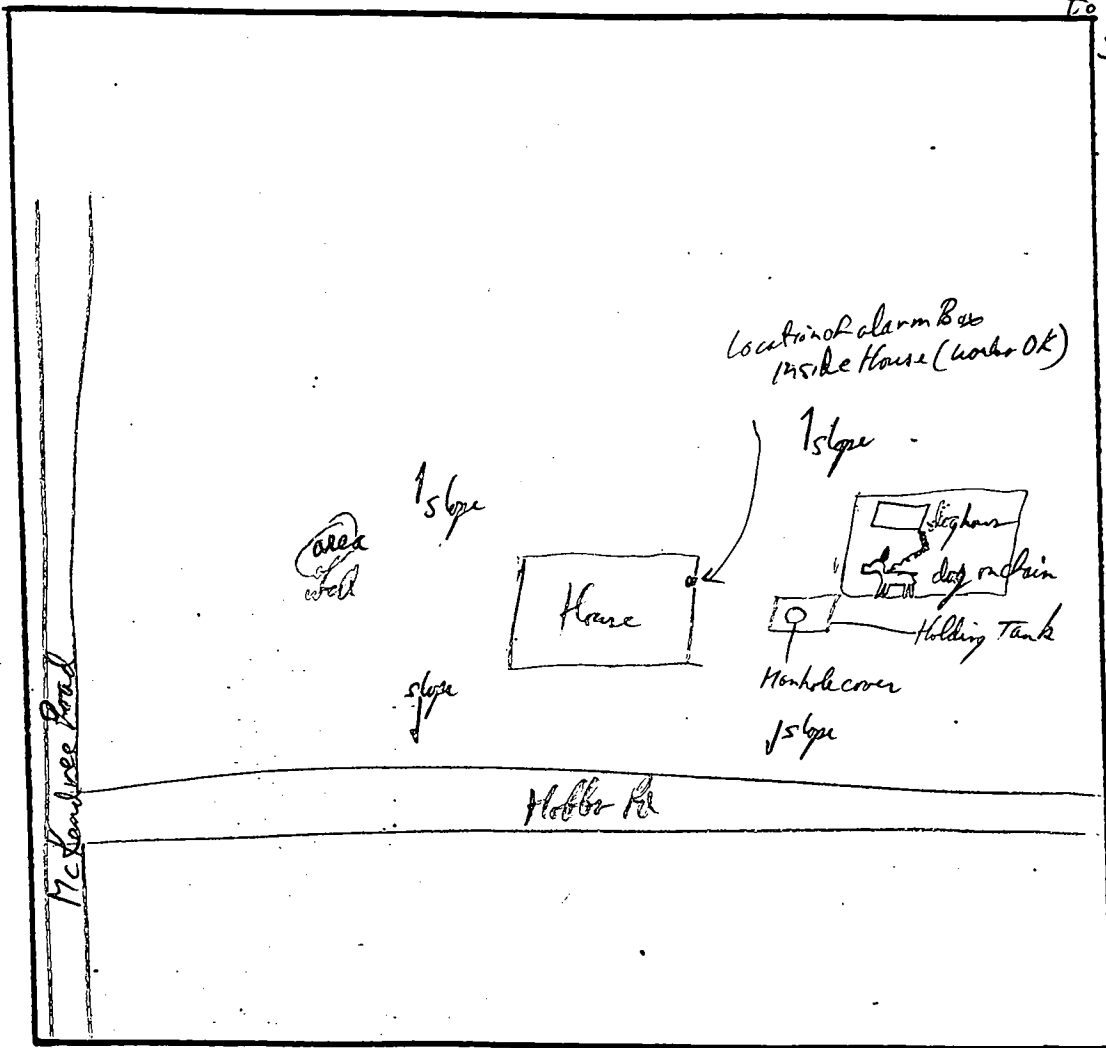 Location of alarm Box
inside House (works OK)
slope
slope
area
of
well
House
doghouse
dog on chain
Holding Tank
Manhole cover
slope
slope
McKendree Road